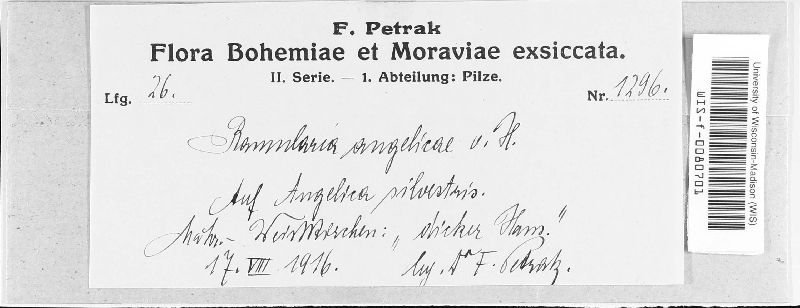 F. Petrak
Flora Bohemiae et Moraviae exsiccata.
II. Serie. — 1. Abteilung: Pilze.
Lfg. 26.
Nr. 1296.
Ramularia angelicae v. H.
Auf Angelica silvestris.
Mähr.-Weisskirchen: „dicker Hans."
17. VIII 1916. leg. Dr F. Petrak.
University of Wisconsin-Madison (WIS)
WIS-f-0080701